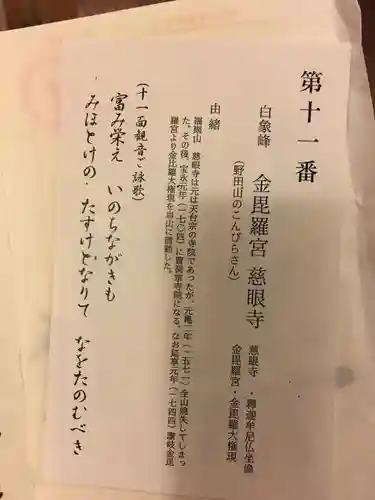 第十一番
白象峰 金毘羅宮 慈眼寺
(野田山のこんぴらさん)
慈眼寺 ・釋迦牟尼仏坐像
金毘羅宮・金毘羅大権現
由緒
福聚山 慈眼寺は元は天台宗の寺院であったが、元亀二年(一五七一)全山焼失してしまっ
た。その後、宝永元年(一七〇四)に曹洞宗寺院になる。なお延享元年(一七四四)讃岐金毘
羅宮より金比羅大権現を当山に勧請した。
(十一面観音ご詠歌)
富み栄え いのちながきも
みほとけの・たすけとなりて なをたのむべき